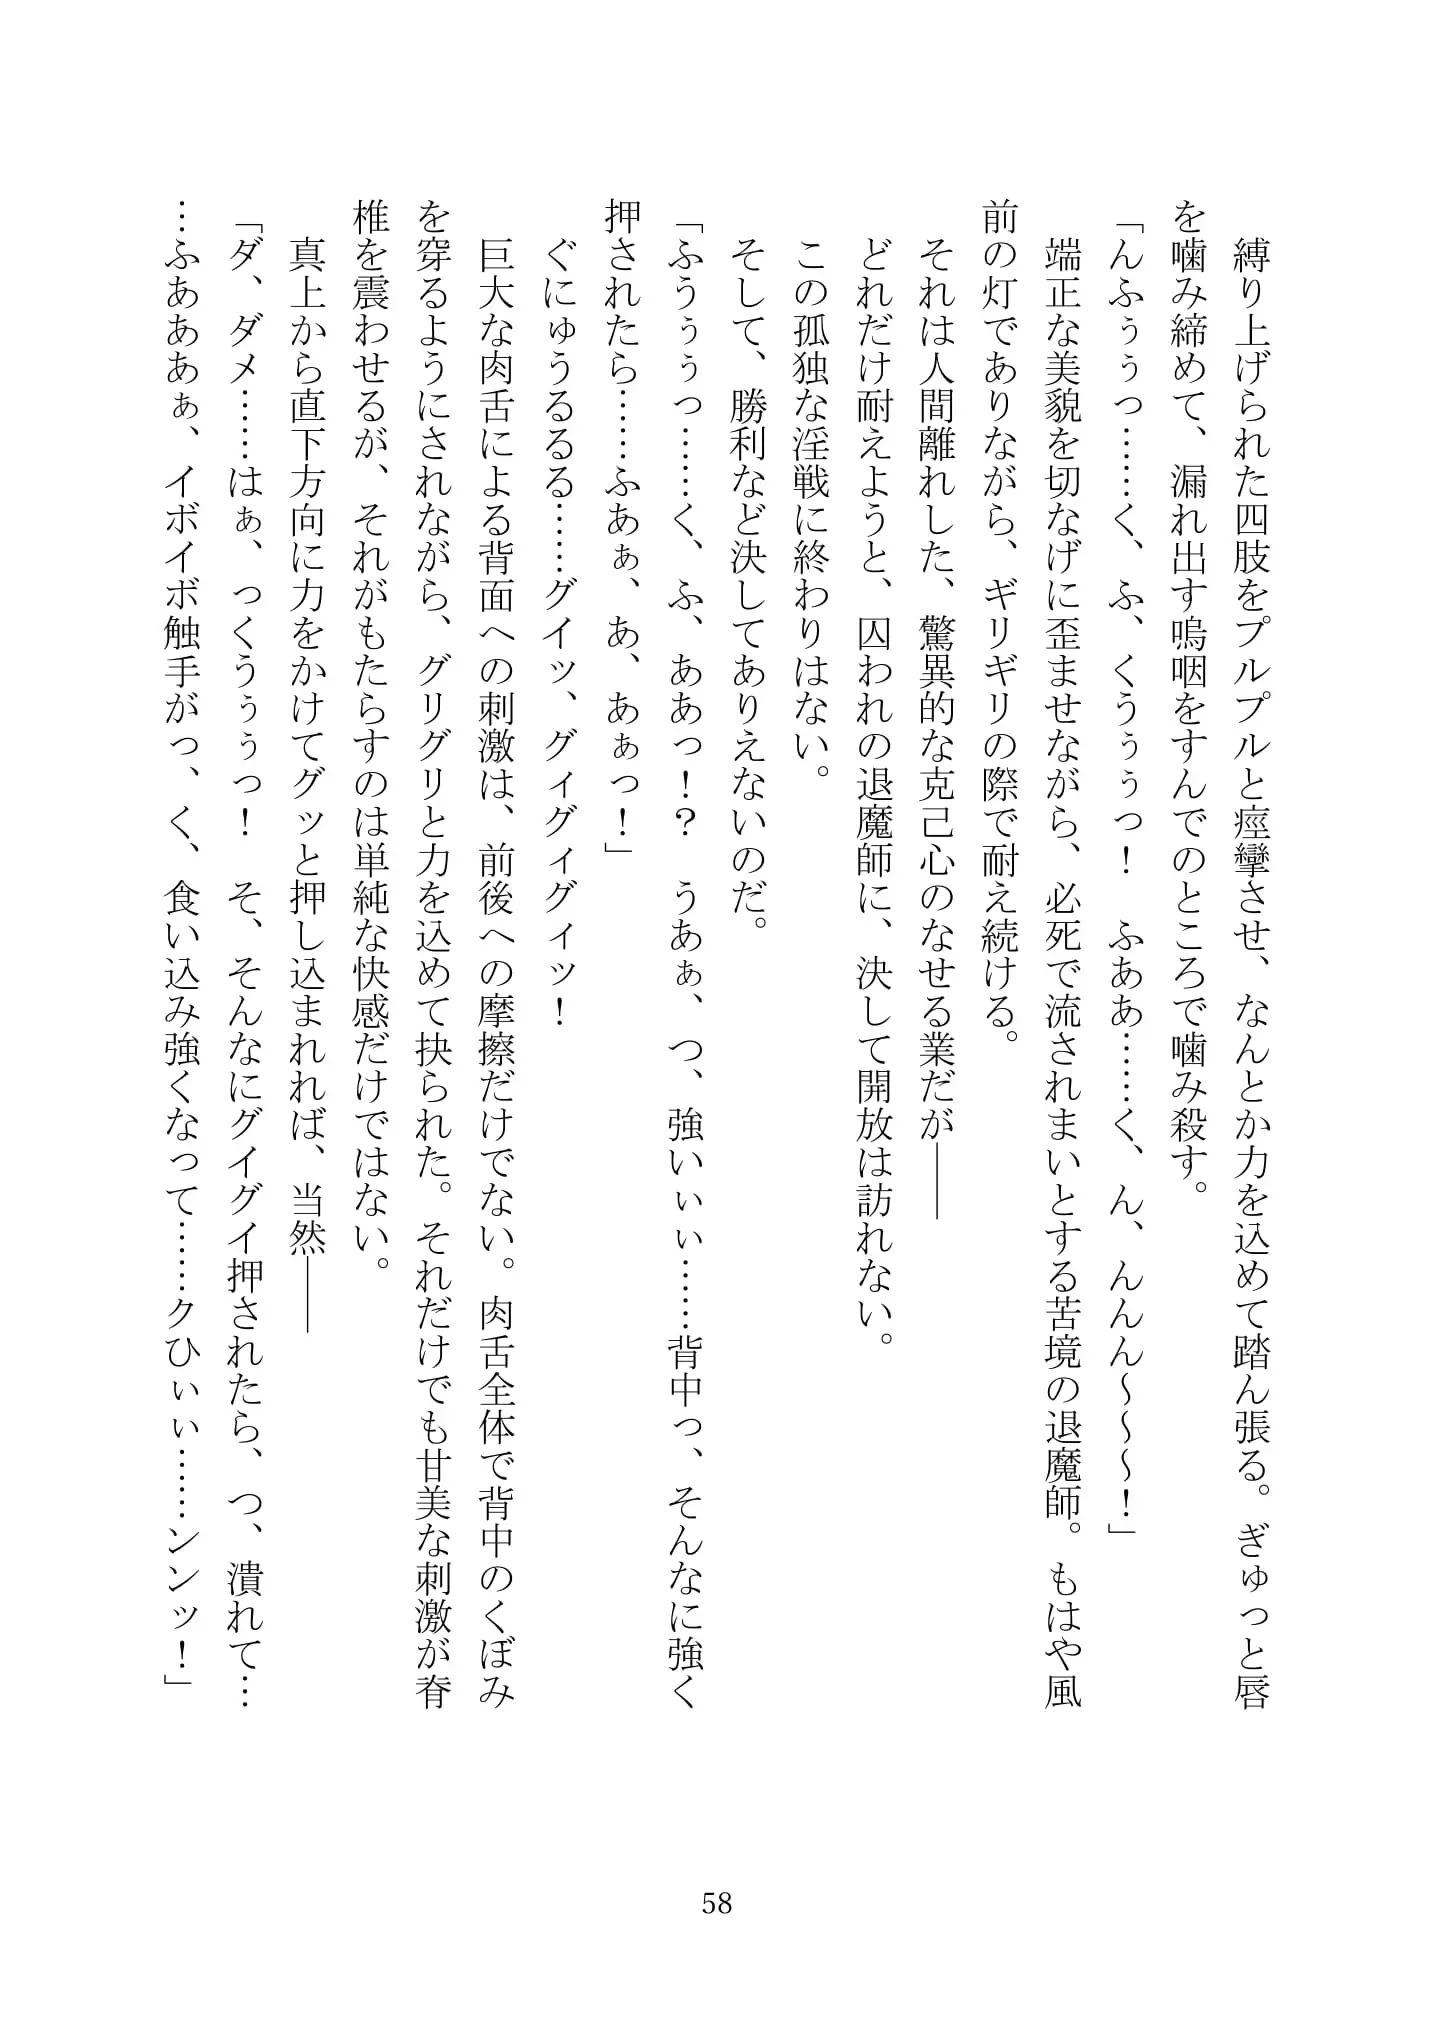 縛り上げられた四肢をプルプルと痙攣させ、なんとか力を込めて踏ん張る。ぎゅっと唇
を噛み締めて、漏れ出す嗚咽をすんでのところで噛み殺す。
「んふぅぅっ……く、ふ、くうぅぅっ！　ふああ……く、ん、んんん～～～！」
端正な美貌を切なげに歪ませながら、必死で流されまいとする苦境の退魔師。もはや風
前の灯でありながら、ギリギリの際で耐え続ける。
それは人間離れした、驚異的な克己心のなせる業だが――
どれだけ耐えようと、囚われの退魔師に、決して開放は訪れない。
この孤独な淫戦に終わりはない。
そして、勝利など決してありえないのだ。
「ふうぅぅっ……く、ふ、ああっ！？　うあぁ、つ、強いぃぃ……背中っ、そんなに強く
押されたら……ふあぁ、あ、あぁっ！」
ぐにゅうるるる……グイッ、グィグィグィッ！
巨大な肉舌による背面への刺激は、前後への摩擦だけでない。肉舌全体で背中のくぼみ
を穿るようにされながら、グリグリと力を込めて抉られた。それだけでも甘美な刺激が脊
椎を震わせるが、それがもたらすのは単純な快感だけではない。
真上から直下方向に力をかけてグッと押し込まれれば、当然――
「ダ、ダメ……はぁ、っくうぅぅっ！　そ、そんなにグイグイ押されたら、つ、潰れて…
…ふあああぁ、イボイボ触手がっ、く、食い込み強くなって……クひぃぃ……ンンッ！」
58